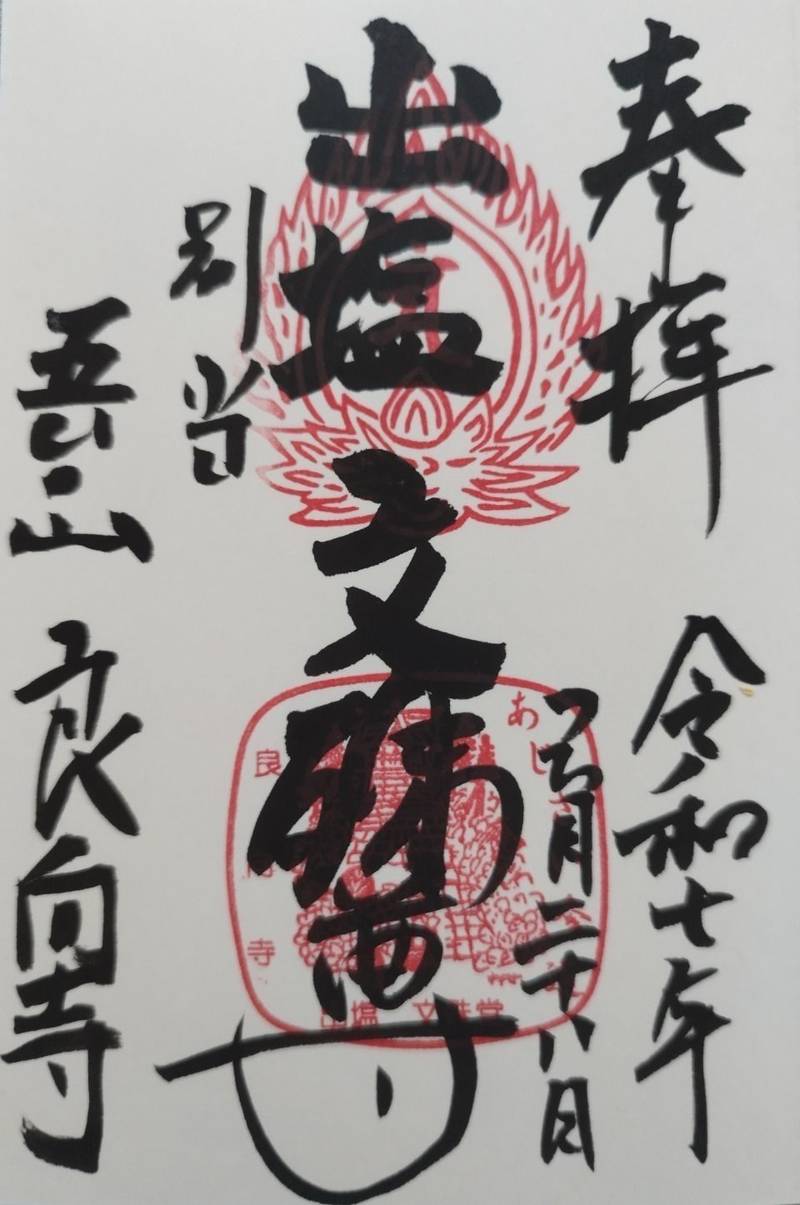 奉拝
令和七年
六月二十八日
出塩文殊尊
別当
五台山
良向寺
あじ
良向寺
出塩 文殊堂